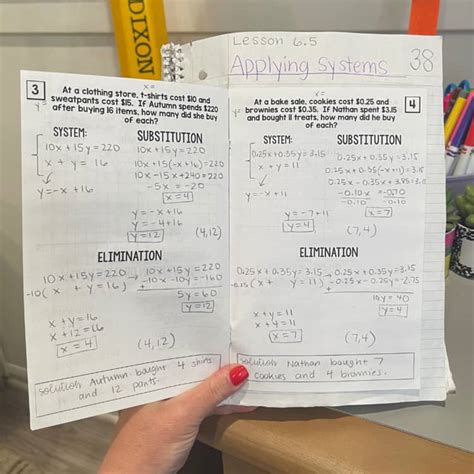 DIXON
Lesson 6.5
Applying Systems
38
3
At a clothing store, t-shirts cost $10 and
sweatpants cost $15. If Autumn spends $220
after buying 16 items, how many did she buy
of each?
x=
y=
SYSTEM:
10x+15y=220
x + y = 16
y=-x+16
SUBSTITUTION
10x+15y=220
10x+15(-x+16)=220
10x-15x+240=220
-5x = -20
x=4
y=-x+16
y=-4+16
y=12
(4,12)
ELIMINATION
10x+15y=220
-10(x + y=16)
10x+15y=220
+ -10x-10y=-160
5y=60
y=12
x+y=16
x+12=16
x=4
(4,12)
Solution: Autumn bought 4 shirts
and 12 pants.
4
x=
At a bake sale, cookies cost $0.25 and
y= brownies cost $0.35. If Nathan spent $3.15
and bought 11 treats, how many did he buy
of each?
SYSTEM:
0.25x+0.35y=3.15
x + y = 11
y=-x+11
SUBSTITUTION
0.25x+0.35y=3.15
0.25x+0.35(-x+11)=3.15
0.25x-0.35x+3.85=3.15
-0.10x = -0.70
-0.10 -0.10
x=7
y=-7+11
y=4
(7,4)
ELIMINATION
0.25x+0.35y=3.15
-0.25(x + y=11)
0.25x+0.35y=3.15
+ -0.25x-0.25y=-2.75
y=4
x+y=11
x+4=11
x=7
(7,4)
Solution: Nathan bought 7
cookies and 4 brownies.